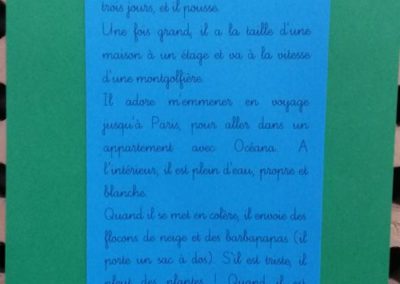 trois jours, et il pousse.
Une fois grand, il a la taille d'une
maison à un étage et va à la vitesse
d'une montgolfière.
Il adore m'emmener en voyage
jusqu'à Paris, pour aller dans un
appartement avec Océana. A
l'intérieur, il est plein d'eau, propre et
blanche.
Quand il se met en colère, il envoie des
flocons de neige et des barbapapas (il
porte un sac à dos). S'il est triste, il
pleut des plantes ! Quand il est